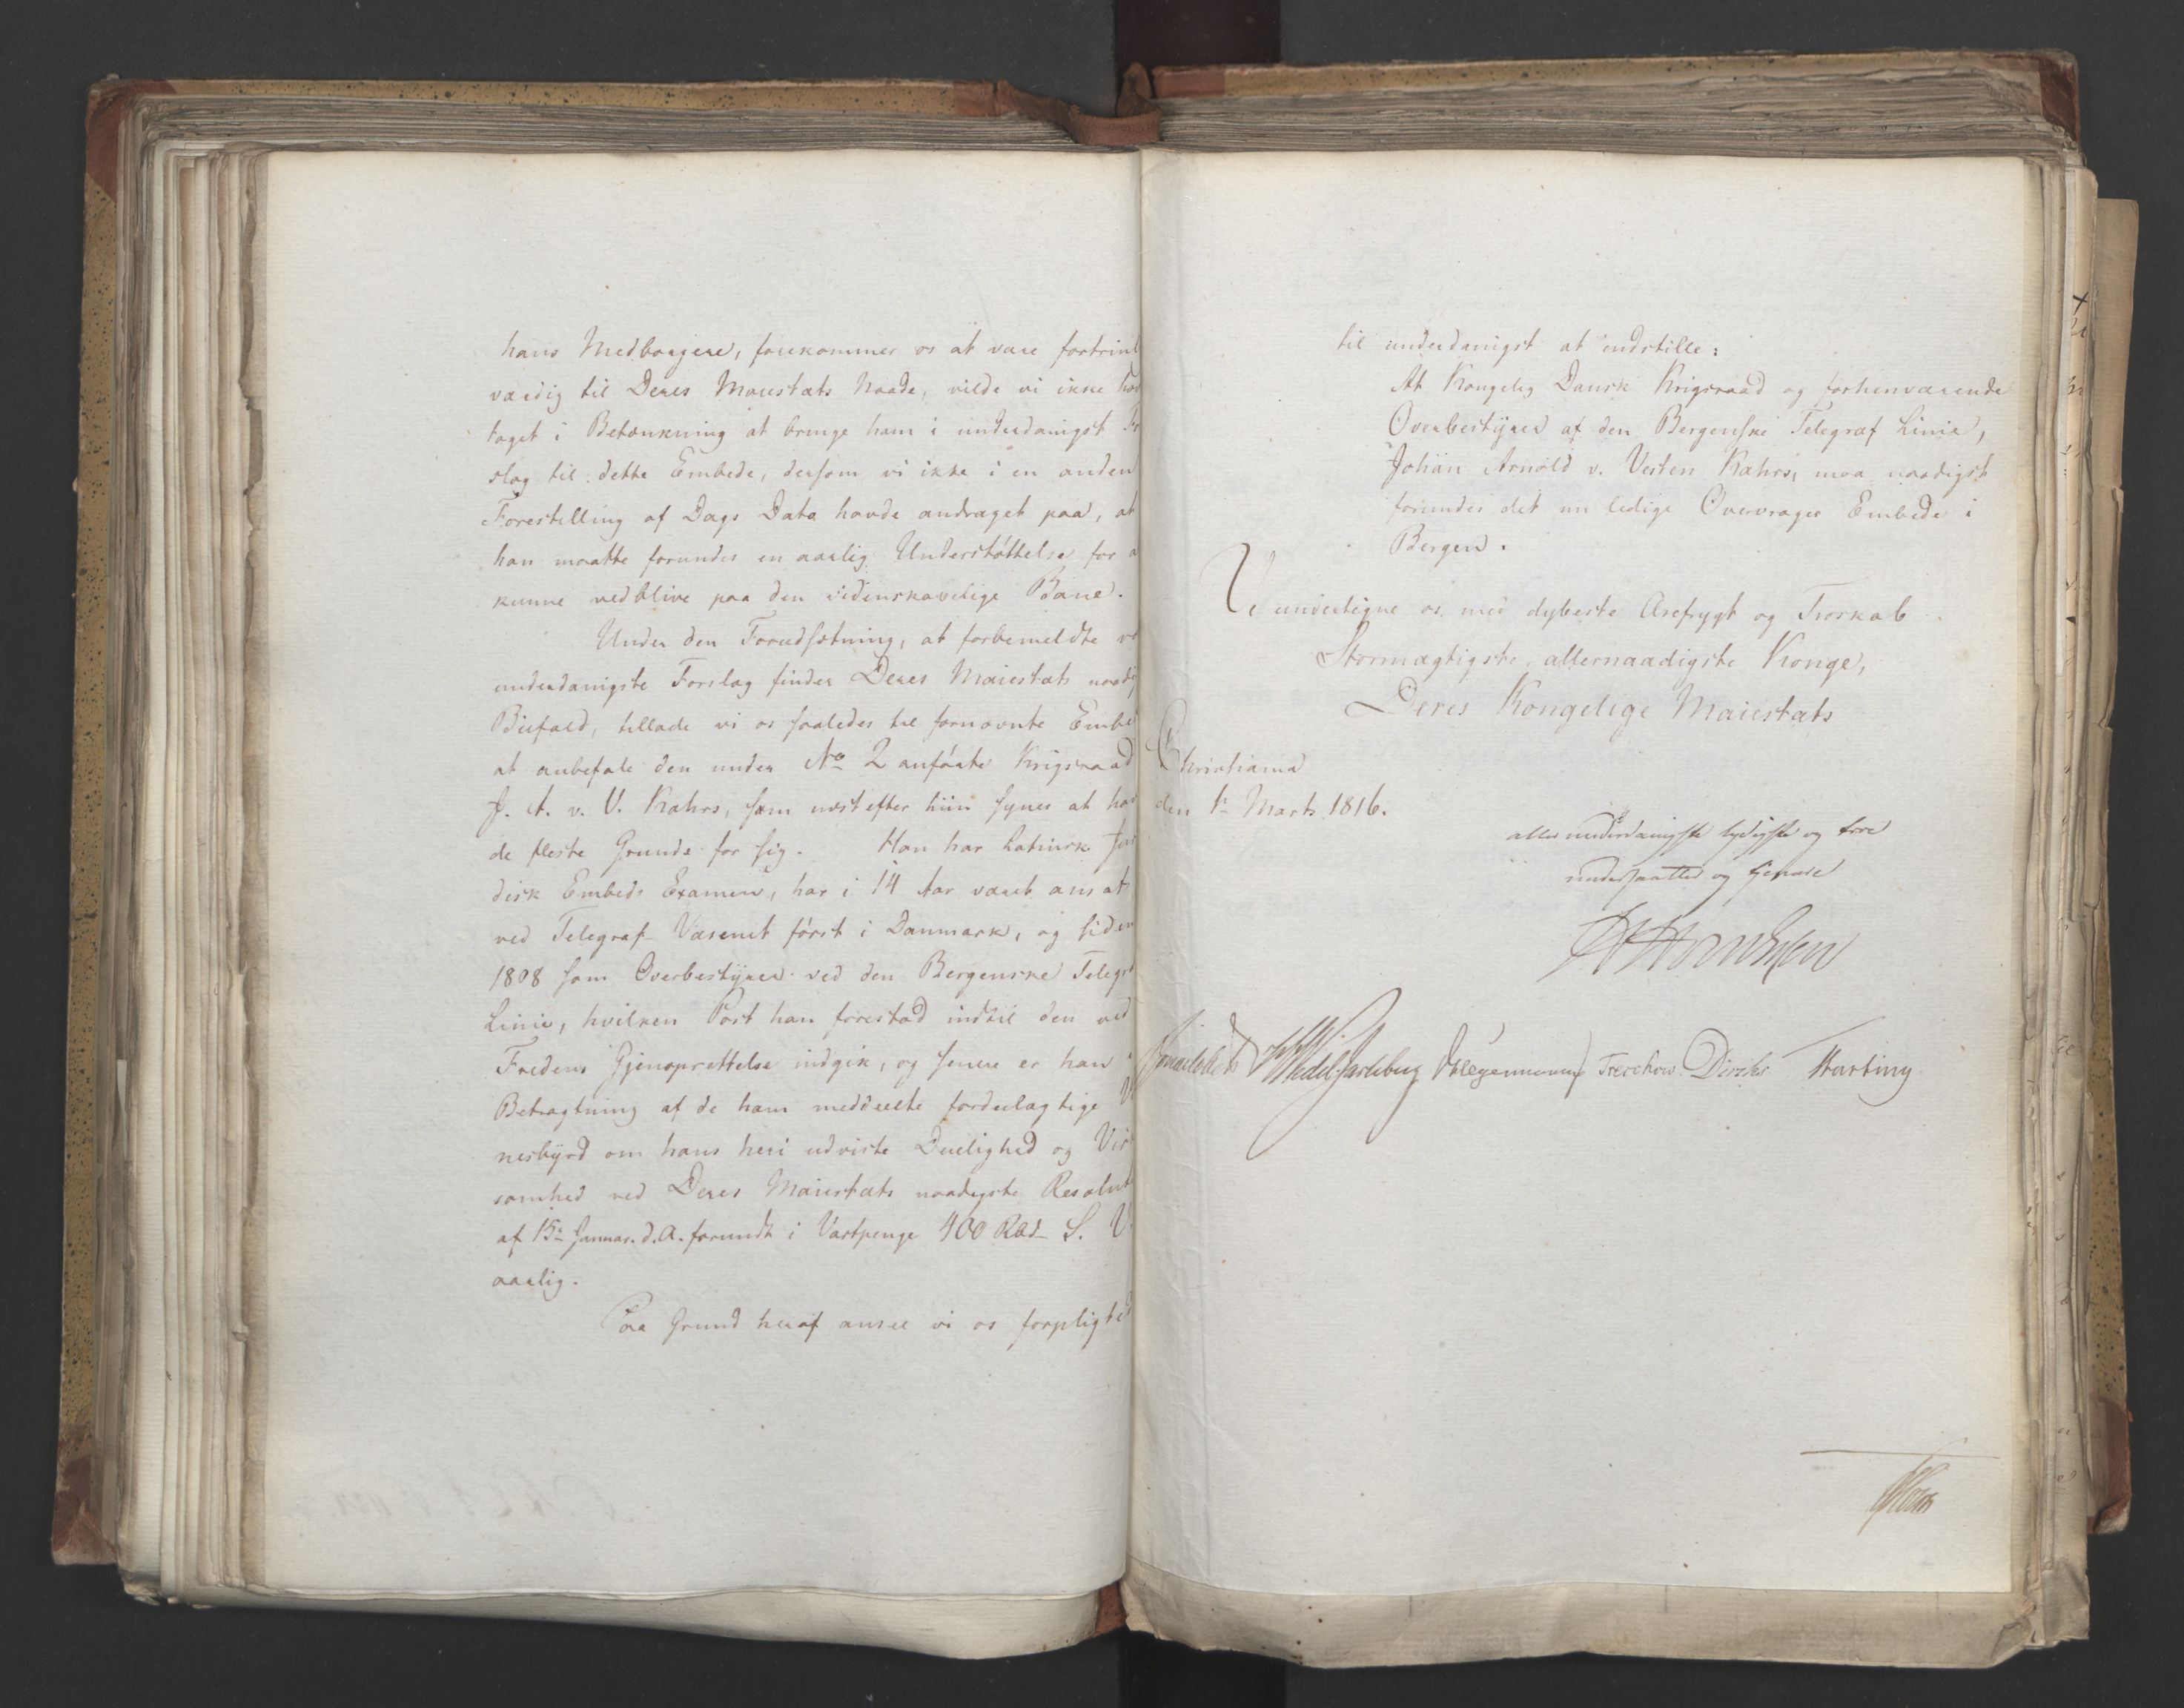 hans Medborgere, forekommer os at være fortrinl
værdig til Deres Maiestæts Naade, vilde vi ikke hav
taget i Betænkning at bringe ham i underdanigst Fo
slag til dette Embede, dersom vi ikke i en anden
Forestilling af Dags Dato havde andraget paa, at
han maatte forundes en aarlig Understøttelse for a
kunne vedblive paa den videnskabelige Bane.
Under den Forudsætning, at forbemeldte vo
underdanigste Forslag finder Deres Maiestæts naadig
Biefald, tillade vi os saaledes til fornævnte Embe
at anbefale den under No 2 anførte Krigsraad
J. A. v. V. Kahrs, som næst efter hiin synes at hav
de fleste Grunde for sig. Han har Latinsk Juri
disk Embeds Examen, har i 14 Aar været ansat
ved Telegraf-Væsenet først i Danmark, og siden
1808 som Overbestÿrer ved den Bergenske Telegra
Linie, hvilken Post han forestod indtil den ved
Fredens Gjenoprettelse indgik, og senere er han
Betragtning af de ham meddeelte fordeelagtige Vi
nesbÿrd om hans heri udviste Duelighed og Vir
somhed ved Deres Maiestæts naadigste Resolut
af 15de Januar d. A. forundt i Vartpenge 400 Rbd S. V.
aarlig.
Paa Grund heraf ansee vi os forpligted
til underdanigst at indstille:
At Kongelig Dansk Krigsraad og forhenværende
Overbestÿrer af den Bergenske Telegraf Linie,
Johan Arnold v. Vesten Kahrs, maa naadigst
forundes det nu ledige Overvrager Embede i
Bergen.
Vi undertegne os med dybeste Ærefrygt og Troskab
Stormægtigste, allernaadigste Konge,
Deres Kongelige Maiestæts
Christiania
den 1te Marts 1816.
allerunderdanigste lydigste og troe
undersaatter og tienere
Sommerhielm Wedel Jarlsberg Treschow Diriks Harting